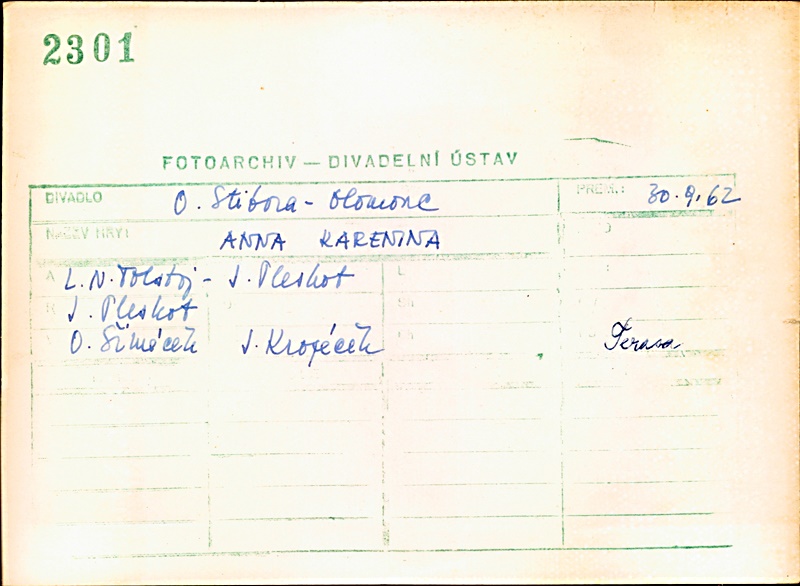 2301
FOTOARCHIV — DIVADELNÍ ÚSTAV
DIVADLO O. Stibora - Olomouc PREM.: 30.9.62
NÁZEV HRY: ANNA KARENINA
A L.N. Tolstoj - J. Pleskot L
J. Pleskot
O. Šimáček J. Kropáček